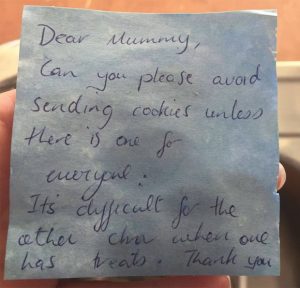 Dear Mummy,
Can you please avoid
sending cookies unless
there is one for
everyone.
It's difficult for the
other chn when one
has treats. Thank you